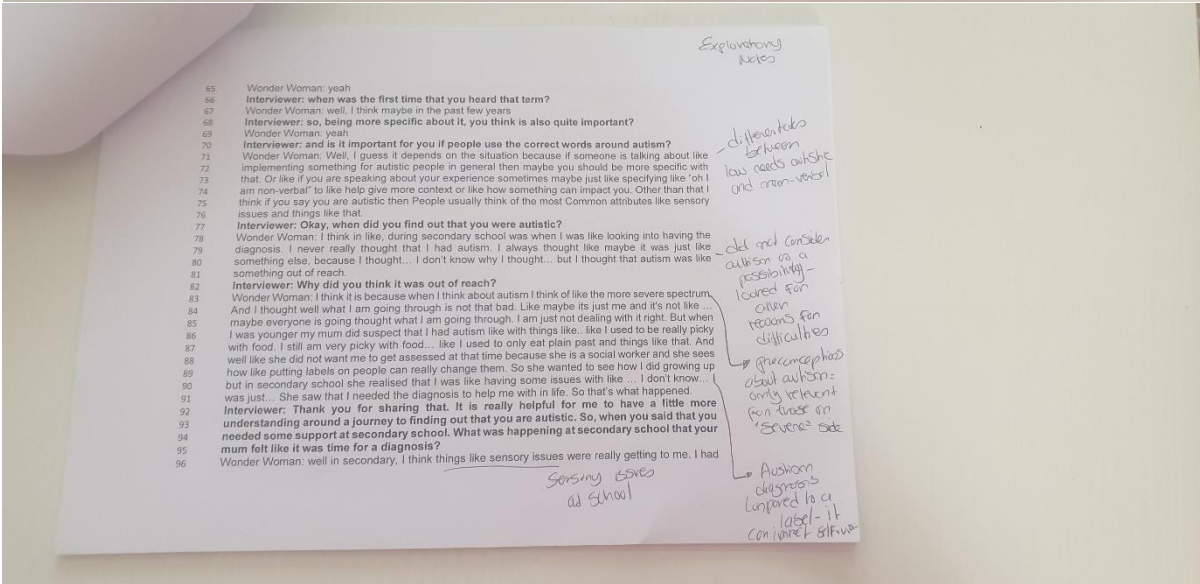 Exploratory
Notes
65 Wonder Woman: yeah
66 Interviewer: when was the first time that you heard that term?
67 Wonder Woman: well, I think maybe in the past few years
68 Interviewer: so, being more specific about it, you think is also quite important?
69 Wonder Woman: yeah
70 Interviewer: and is it important for you if people use the correct words around autism?
71 Wonder Woman: Well, I guess it depends on the situation because if someone is talking about like
72 implementing something for autistic people in general then maybe you should be more specific with
73 that. Or like if you are speaking about your experience sometimes maybe just like specifying like "oh I
74 am non-verbal" to like help give more context or like how something can impact you. Other than that I
75 think if you say you are autistic then People usually think of the most Common attributes like sensory
76 issues and things like that.
77 Interviewer: Okay, when did you find out that you were autistic?
78 Wonder Woman: I think in like, during secondary school was when I was like looking into having the
79 diagnosis. I never really thought that I had autism. I always thought like maybe it was just like
80 something else, because I thought... I don't know why I thought... but I thought that autism was like
81 something out of reach.
82 Interviewer: Why did you think it was out of reach?
83 Wonder Woman: I think it is because when I think about autism I think of like the more severe spectrum.
84 And I thought well what I am going through is not that bad. Like maybe its just me and it's not like ...
85 maybe everyone is going thought what I am going through. I am just not dealing with it right. But when
86 I was younger my mum did suspect that I had autism like with things like.. like I used to be really picky
87 with food. I still am very picky with food... like I used to only eat plain past and things like that. And
88 well like she did not want me to get assessed at that time because she is a social worker and she sees
89 how like putting labels on people can really change them. So she wanted to see how I did growing up
90 but in secondary school she realised that I was like having some issues with like ... I don't know... I
91 was just... She saw that I needed the diagnosis to help me with in life. So that's what happened.
92 Interviewer: Thank you for sharing that. It is really helpful for me to have a little more
93 understanding around a journey to finding out that you are autistic. So, when you said that you
94 needed some support at secondary school. What was happening at secondary school that your
95 mum felt like it was time for a diagnosis?
96 Wonder Woman: well in secondary, I think things like sensory issues were really getting to me. I had
- differentiates
between
low needs autistic
and non-verbal
- did not consider
autism as a
possibility -
looked for
other
reasons for
difficulties
preconceptions
about autism =
only relevant
for those on
"severe" side
Autism
diagnosis
compared to a
label - it
can impact
issues
at school